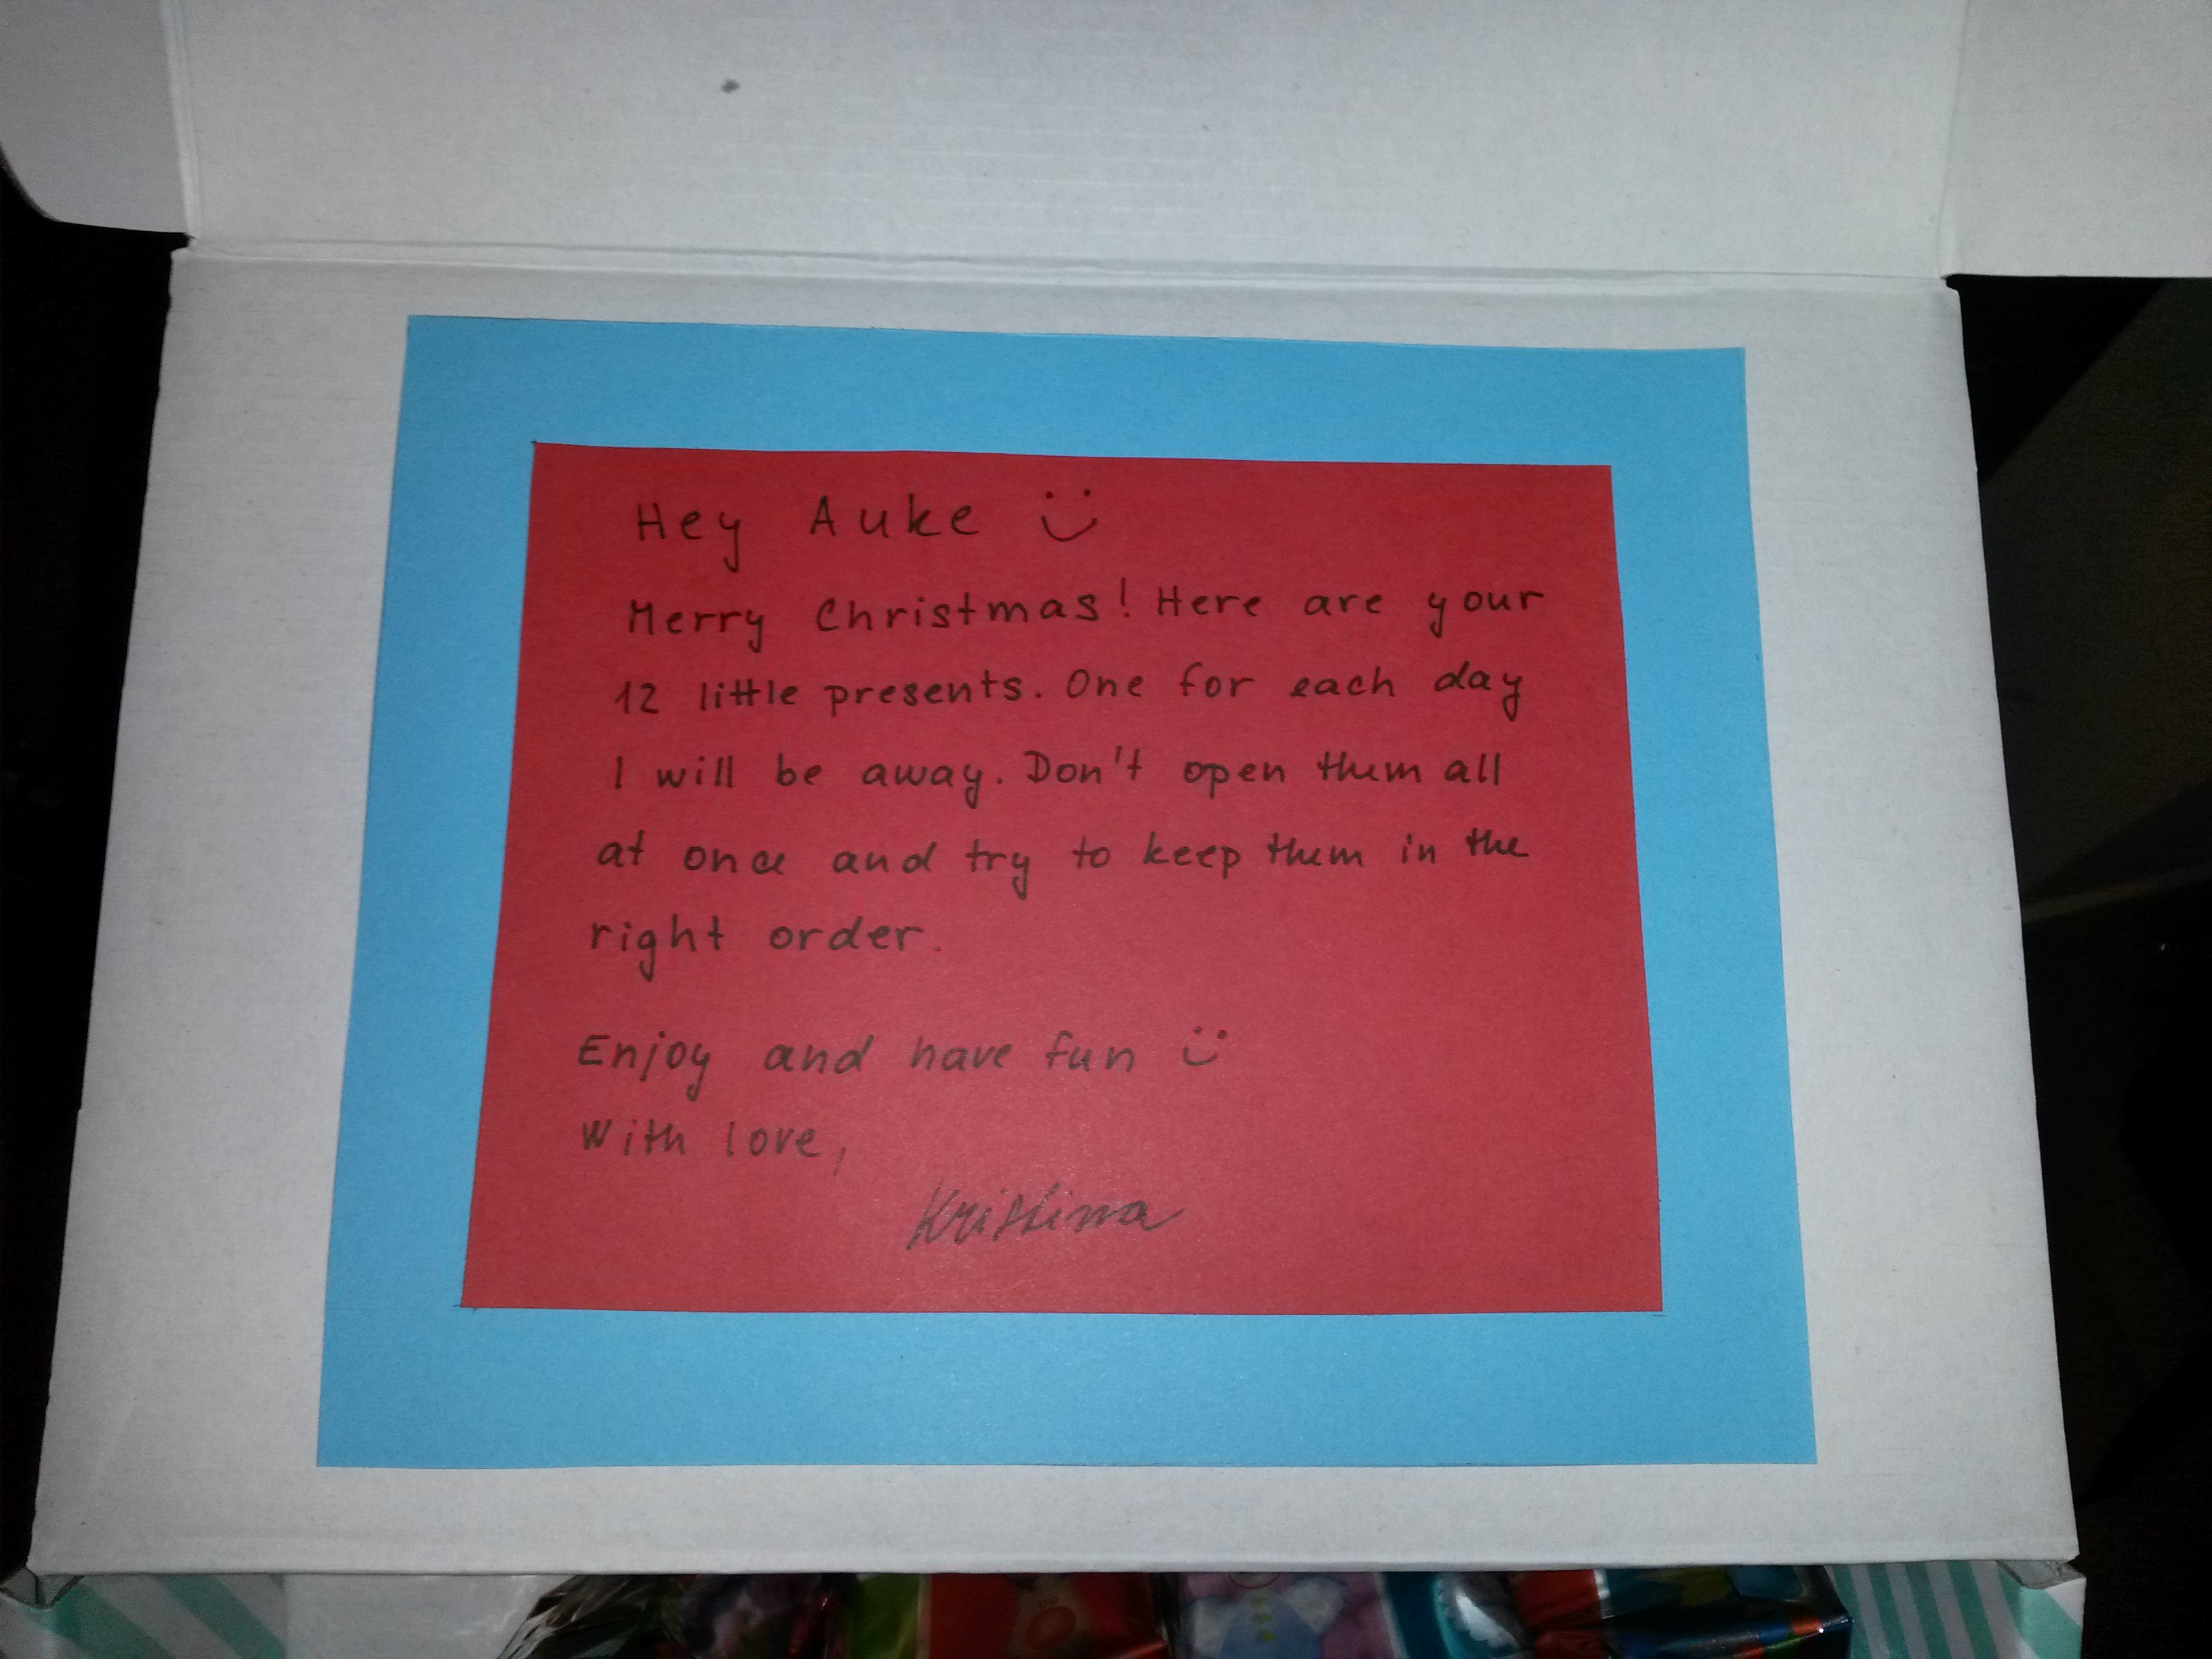 Hey Auke :)
Merry Christmas! Here are your
12 little presents. One for each day
I will be away. Don't open them all
at once and try to keep them in the
right order.
Enjoy and have fun :)
With love,
Kristina